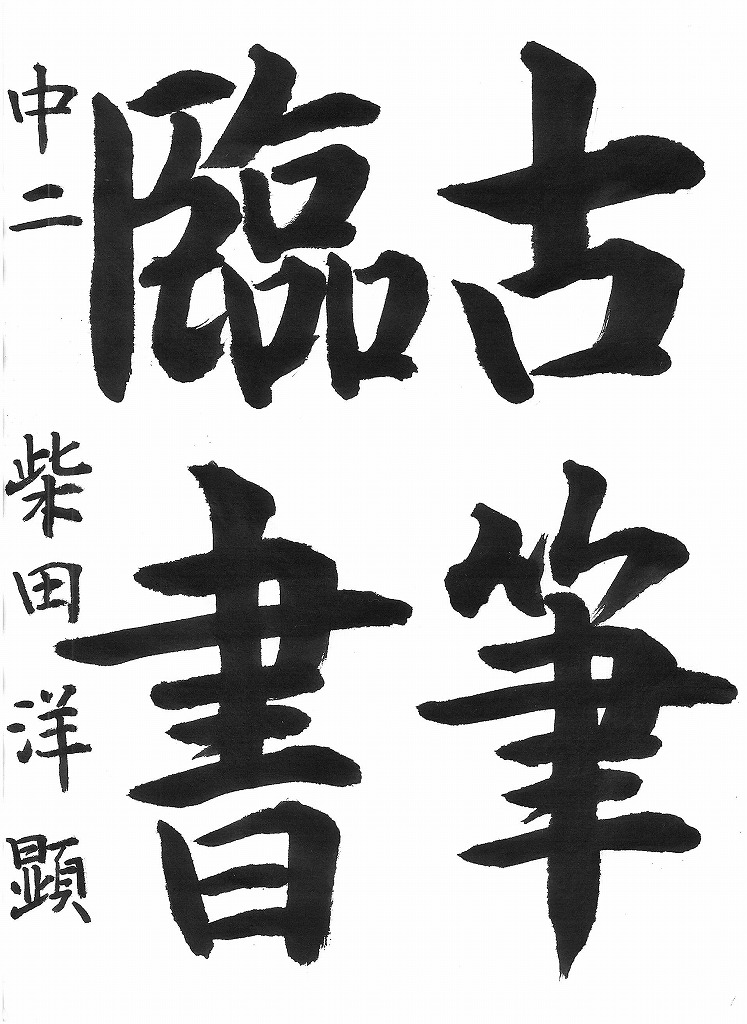 古筆
臨書
中二 柴田洋顕